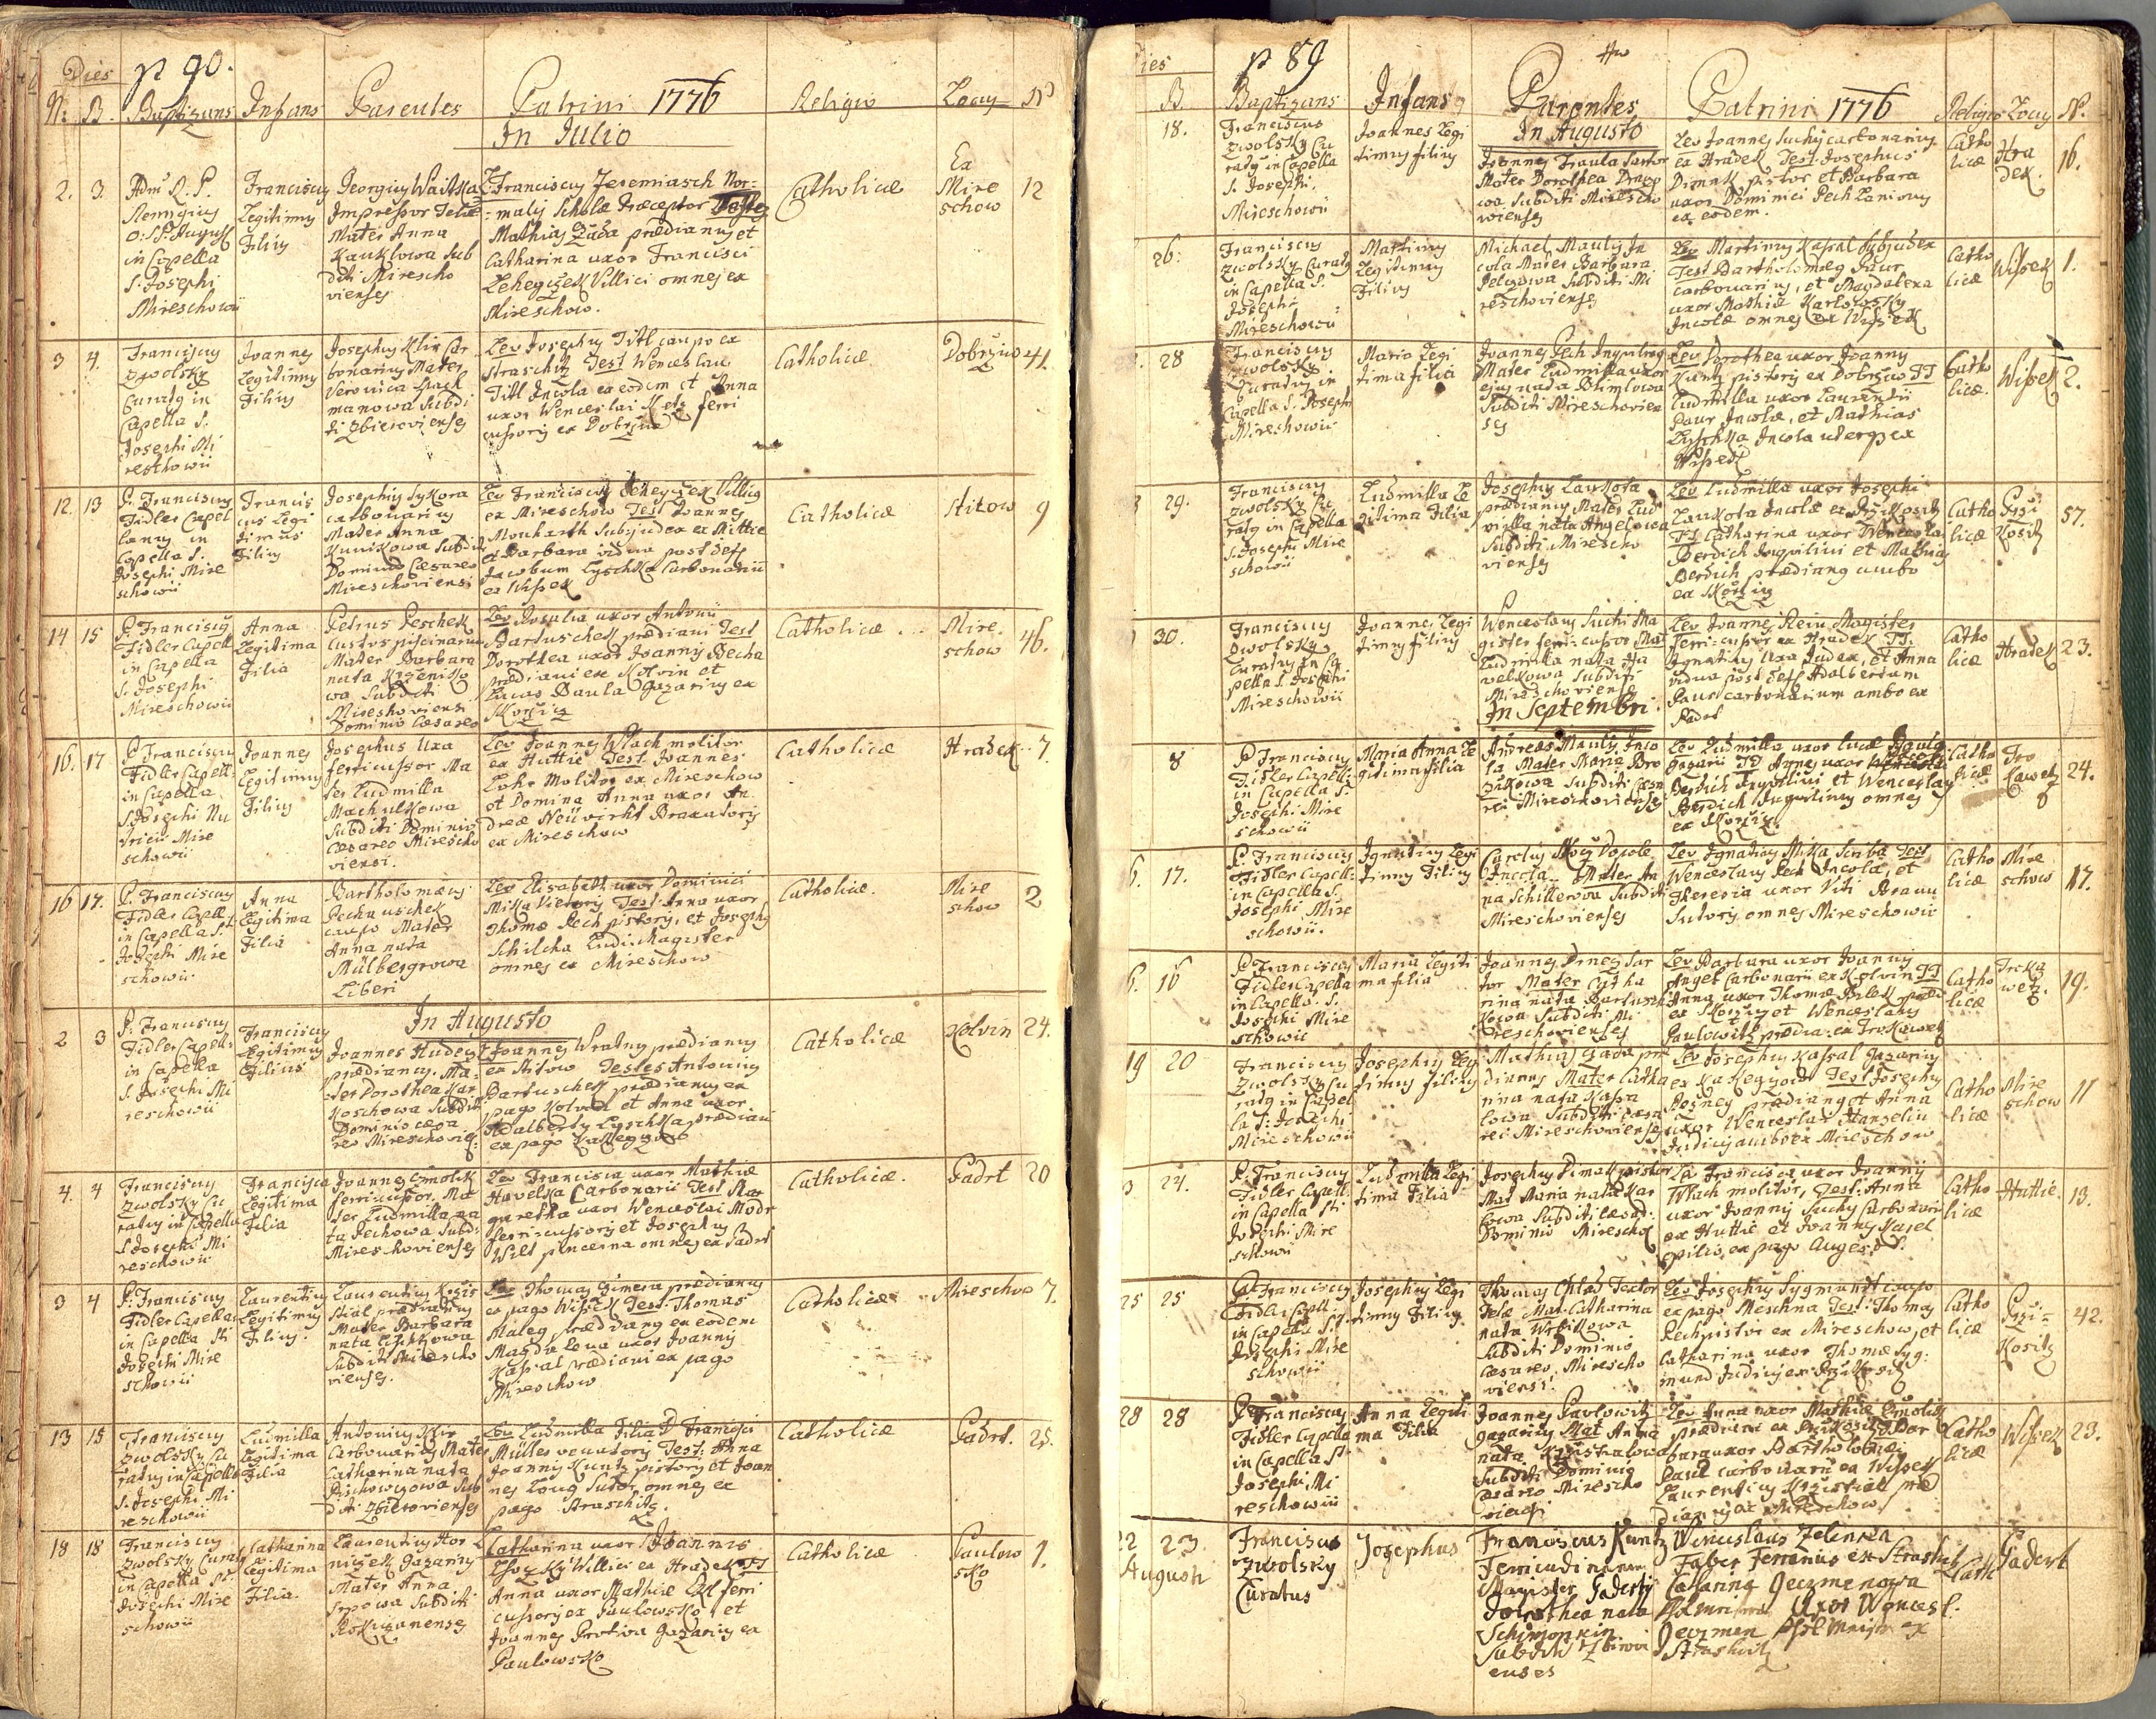 Dies
p 90.
N. B. Baptizans Infans Parentes Patrini 1776 Religio Locus N
In Julio
2. 3.
Adm R. P.
Remygius
in Capella
S. Josephi
Mireschowii
Franciscus
Legitimus
Filius
Georgius
Impressor Telae
Mater Anna
Kauklowa Sub
diti Mirescho
vienses
Franciscus Jeremiasch Nor=
=malis Scholae Praeceptor
Mathias Zuda praedianus et
Catharina uxor Francisci
Lehegczek Villici omnes ex
Mireschow.
Catholicae
Ex
Mire
schow
12
3 4.
Franciscus
Zwolsky
Curatus in
Capella S.
Josephi Mi
reschowii
Joannes
Legitimus
Filius
Josephus Klir Car
bonarius Mater
Veronica
manowa Subdi
ti Zbirovienses
Lev Josephus Titl caupo ex
Straschitz Test Wenceslaus
Titl Incola ex eodem et Anna
uxor Wenceslai Ketz ferri
cussoris ex Dobrziw
Catholicae
Dobrziw 41.
12. 13
P. Franciscus
Fidler Capel
lanus in
Capella S.
Josephi Mire
schowii
Francis
cus Legi
timus
Filius
Josephus Sykora
carbonarius
Mater Anna
Kunikowa Subditi
Dominio Caesareo
Mireschoviensi
Lev Franciscus Lehegczek Villicus
ex Mireschow Test Joannes
Monharth Subjudex ex Mittie
et Barbara vidua post deff
Jacobum Lyschka Carbonarii
ex Wissek
Catholicae
Stitow
9
14 15
P. Franciscus
Fidler Capell
in Capella
S. Josephi
Mireschowii
Anna
Legitima
Filia
Petrus Peschek
custos piscinarum
Mater Barbara
nata Krzenisko
wa Subditi
Mireshoviensi
Dominio Caesareo
Lev Rosalia uxor Antonii
Bartuschek praediani Test
Dorothea uxor Joannis Becha
praediani ex Kolvin et
Lucas Baula Gazarius ex
Skorzicz
Catholicae
Mire.
schow
46.
16. 17
P Franciscus
Fidler Capell:
in Capella
S. Josephi Nu
tricii Mire
schowii
Joannes
Legitimus
Filius
Josephus Uxa
ferricussor Ma
ter Ludmilla
Machulkowa
Subditi Dominio
Caesareo Mirescho
viensi.
Lev Joannes Wlach molitor
ex Huttie Test Joannes
Lohr Molitor ex Mireschow
et Domina Anna uxor An
dreae Neüwirht Braxatoris
ex Mireschow
Catholicae
Hradek
7.
16 17.
P. Franciscus
Fidler Capell
in Capella S.
Josephi Mire
schowii
Anna
Legitima
Filia
Bartholomaeus
Pechauschek
caupo Mater
Anna nata
Mülbergrowa
Liberi
Lev Elisabeth uxor Dominici
Mika Victoris Test Anna uxor
Thomae Pech pistoris, et Josephus
Schilcha Ludi-Magister
omnes ex Mireschow
Catholicae.
Mire
schow
2
In Augusto
2 3
P. Franciscus
Fidler Capell:
in Capella
S. Josephi Mi
reschowii
Franciscus
Legitimus
Filius
Joannes Hudetz
praedianus. Ma=
ter Dorothea Kar
koschowa Subditi
Dominio Caesa
reo Mireschovien:
Joannes Wratny praedianus
ex Stitow Testes Antonius
Bartuschek praedianus ex
pago Kolvin et Anna uxor
Adalberti Lyschka praediani
ex pago
Catholicae
Kolvin 24.
4. 4
Franciscus
Zwolsky Cu
ratus in Capella
S Josephi Mi
reschowii
Francisca
Legitima
Filia
Joannes Czmolik
ferricussor. Ma
ter Ludmilla na
ta Pechowa Subd:
Mireschovienses
Lev Francisca uxor Mathiae
Havelka Carbonarii Test Mar
garetha uxor Wenceslai Modr
ferri-cussoris et Josephus
Wild pincerna omnes ex Padrt
Catholicae.
Padrt 20
3 4
P. Franciscus
Fidler Capellan
in Capella Sti
Josephi Mire
schowii
Laurentius
Legitimus
Filius.
Laurentius Krzis
tial praedianus
Mater Barbara
nata Lischkowa
Subditi Mirescho
vienses.
Lev Thomas Zimera praedianus
ex pago Wissek Test: Thomas
Males praedianus ex eodem
Magdalena uxor Joannis
Kassal praediani ex pago
Mireschow
Catholicae
Mireschow 7.
13 15
Franciscus
Zwolsky Cu
ratus in Capella
S. Josephi Mi
reschowii
Ludmilla
Legitima
Filia
Antonius Klir
Carbonarius Mater
Catharina nata
Sub
diti Zbirovienses
Lev Ludmilla Filia D Francisci
Müller venatoris Test. Anna
Joannis Kuntz pistoris et Joan
nes Long Sutor omnes ex
pago Straschitz.
Catholicae
Padrt. 25.
18 18
Franciscus
Zwolsky Curatus
in Capella Sti
Josephi Mire
schowii
Catharina
Legitima
Filia.
Laurentius Hor
niczek Gazarius
Mater Anna
Srpowa Subditi
Rokiczanenses
Catharina uxor Joannis
Villici ex Hradek TT
Anna uxor Mathiae Exl ferri
cussoris ex Paulowsko, et
Joannes Protiva Gazarius ex
Paulowsko
Catholicae
Paulow
sko
1.
Dies
p 89
B. Baptizans Infans Parentes Patrini 1776 Religio Locus N.
In Augusto
18.
Franciscus
Zwolsky Cu
ratus in Capella
S. Josephi,
Mireschowii
Joannes Legi
timus filius
Joannes Fraula Sartor
Mater Dorothea
wa Subditi Mirescho
vienses
Lev Joannes Suchy carbonarius
ex Hradek Test. Josephus
Dimak pistor et Barbara
uxor Dominici Pech Lanionis
ex eodem.
Catho
licae
Hra
dek.
16.
26.
Franciscus
Zwolsky Curatus
in Capella S.
Josephi
Mireschowii
Martinus
Legitimus
Filius
Michael Maulis In
cola Mater Barbara
Pelczowa Subditi Mi
reschovienses
Lev Martinus Kassal Subjudex
Test Bartholomaeus Paur
carbonarius, et Magdalena
uxor Mathiae Karlowsky
Incolae omnes ex Wissek
Catho
licae
Wissek
1.
28
Franciscus
Zwolsky
Curatus in
Capella S. Josephi
Mireschowii
Maria Legi
tima filia
Joannes Pech Inquilinus
Mater Ludmilla uxor
ejus nata Bhimlowa
Subditi Mireschovien
ses
Lev Dorothea uxor Joannis
Kuntz pistoris ex Dobrziw TT
Ludmilla uxor Laurentii
Paur Incolae, et Mathias
Lyschka Incola uterque ex
Wissek
Catho
licae.
Wissek
2.
29.
Franciscus
Zwolsky Cu
ratus in Capella
S. Josephi Mire
schowii
Ludmilla Le
gitima Filia
Josephus Laukota
praedianus Mater Lud
milla nata Angelowa
Subditi Mirescho
vienses
Lev Ludmilla uxor Josephi
Laukota Incolae ex Przikositz
TT Catharina uxor Wenceslai
Berdich Inquilini et Mathias
Berdich praedianus ambo
ex Skorzicz
Catho
licae
Przi
Kositz
57.
30.
Franciscus
Zwolsky
Curatus in Ca
pella S. Josephi
Mireschowii
Joannes Legi
timus filius
Wenceslaus Suchi Ma
gister ferri-cussor Mat
Ludmilla nata Ha
velkowa Subditi
Mireschovienses
Lev Joannes Stein Magister
ferri-cussor ex Hradek TT.
Ignatius Uxa Judex, et Anna
vidua post deff Adalbertum
Paur carbonarium ambo ex
Padrt
Catho
licae
Hradek 23.
In Septembri
8
P Franciscus
Fidler Capell:
in Capella S.
Josephi Mire
schowii
Maria Anna Le
gitima filia
Andreas Maulis Inco
la Mater Maria Bro
zikowa Subditi Caesa
rei Mireschovienses
Lev Ludmilla uxor Lucae Baula
Gazarii TT Agnes uxor Wenceslai
Berdich Inquilini et Wenceslaus
Berdich Inquilinus omnes
ex Skorzicz.
Catho
licae
Tro
kawetz
24.
6. 17.
P. Franciscus
Fidler Capell:
in Capella S.
Josephi Mire
schowii.
Ignatius Legi
timus Filius
Carolus
Incola Mater An
na Schillerowa Subditi
Mireschovienses
Lev Ignatius Mika Scriba Test
Wenceslaus Pech Incola, et
Theresia uxor Viti Braun
Sutoris omnes Mireschowii
Catho
licae
Mire
schow
17.
6. 16
P Franciscus
Fidler Capella
in Capella S.
Josephi Mire
schowii
Maria Legiti
ma filia
Joannes Sar
tor Mater Catha
rina nata Bartusch
kowa Subditi Mi
reschovienses
Lev Barbara uxor Joannis
Angel Carbonarii ex Kolvin TT
Anna uxor Thomae Bilek praed
ex Skorzicz et Wenceslaus
Paulowitz praedia: ex Trokawetz
Catho
licae
Troka
wetz.
19.
19 20
Franciscus
Zwolsky Cu
ratus in Capel
la S: Josephi
Mireschowii
Josephus Legi
timus filius
Mathias Zada prae
dianus Mater Catha
rina nata Kassa
lowa Subditi Caesa
rei Mireschovienses
Lev Josephus Kassal Gazarius
ex Test Josephus
praedianus et Anna
uxor Wenceslai Hanzelin
Judicis ambo ex Mireschow
Catho
licae
Mire
schow
11
3 24.
P. Franciscus
Fidler Capell:
in Capella Sti
Josephi Mire
schowii
Ludmilla Legi
tima Filia
Josephus Dimak pistor
Mat Maria nata Kar
lowa Subditi Caesar:
Dominio Mirescho
Lev Francisca uxor Joannis
Wlach molitor, Test: Anna
uxor Joannis Suchy Carbonarii
ex Huttie et Joannes Kasel
opilio, ex pago Augezd S.
Catho
licae
Huttie.
13.
25 25
P Franciscus
Fidler Capell
in Capella Sti
Josephi Mire
schowii
Josephus Legi
timus Filius.
Thomas Chlad Textor
Telae Mat. Catharina
nata Wrbikowa
Subditi Dominio
Caesareo Mirescho
viensi.
Lev Josephus Sygmundt caupo
ex pago Meschna Test: Thomas
Pech pistor ex Mireschow, et
Catharina uxor Thomae Syg:
mund Judicis ex Przikositz
Catho
licae
Przi=
Kositz
42.
28 28
P Franciscus
Fidler Capella
in Capella Sti
Josephi Mi
reschowii
Anna Legiti
ma Filia
Joannes Pavlowitz
gazarius Mat Anna
nata Krzistialowa
Subditi Dominio
Caesareo Mirescho
viensi
Lev Anna uxor Mathiae Czmolik
praediani ex Przikositz T Bar
bara uxor Bartholomaei
Paul carbonarii ex Wissek
Laurentius Krzistial prae
dianus ex Mireschow
Catho
licae
Wissek
23.
22 23.
Augusti
Franciscus
Zwolsky
Curatus
Josephus
Franciscus Kuntz
Ferricudinarum
Magister Paderti
Dorothea nata
Schimonkin
Subditi Zbirovi
enses
Wenceslaus Zelenka
Faber Ferrarius ex Straschitz
Catharina Jeczmenowa
Uxor Wencesl:
Jeczmen ex
Straschitz
Cath
Padert